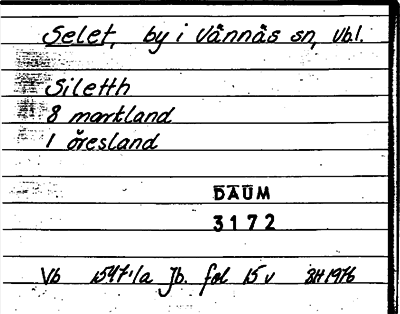 Selet, by i Vännäs sn, Vbl.
Siletth
8 markland
1 öresland
DAUM
3172
Vb 1547:1a Jb. fol 15 v BH 1976